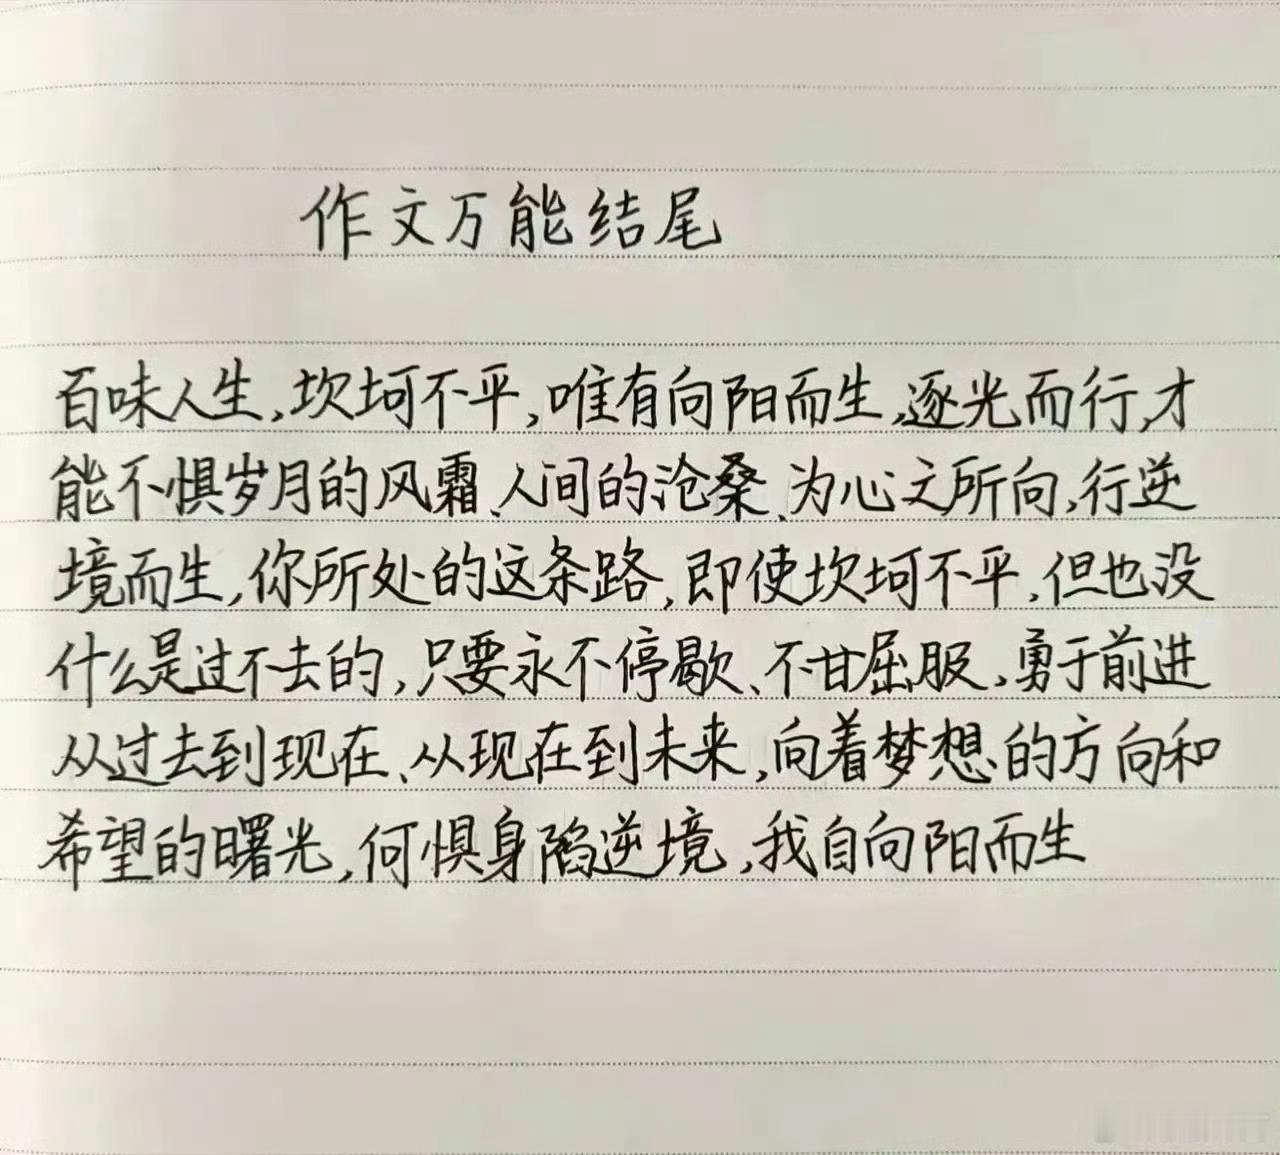 作文万能结尾
百味人生,坎坷不平,唯有向阳而生,逐光而行,才
能不惧岁月的风霜、人间的沧桑、为心文所向,行逆
境而生,你所处的这条路,即使坎坷不平,但也没
什么是过不去的,只要永不停歇、不甘屈服,勇于前进
从过去到现在、从现在到未来,向着梦想的方向和
希望的曙光,何惧身陷逆境,我自向阳而生